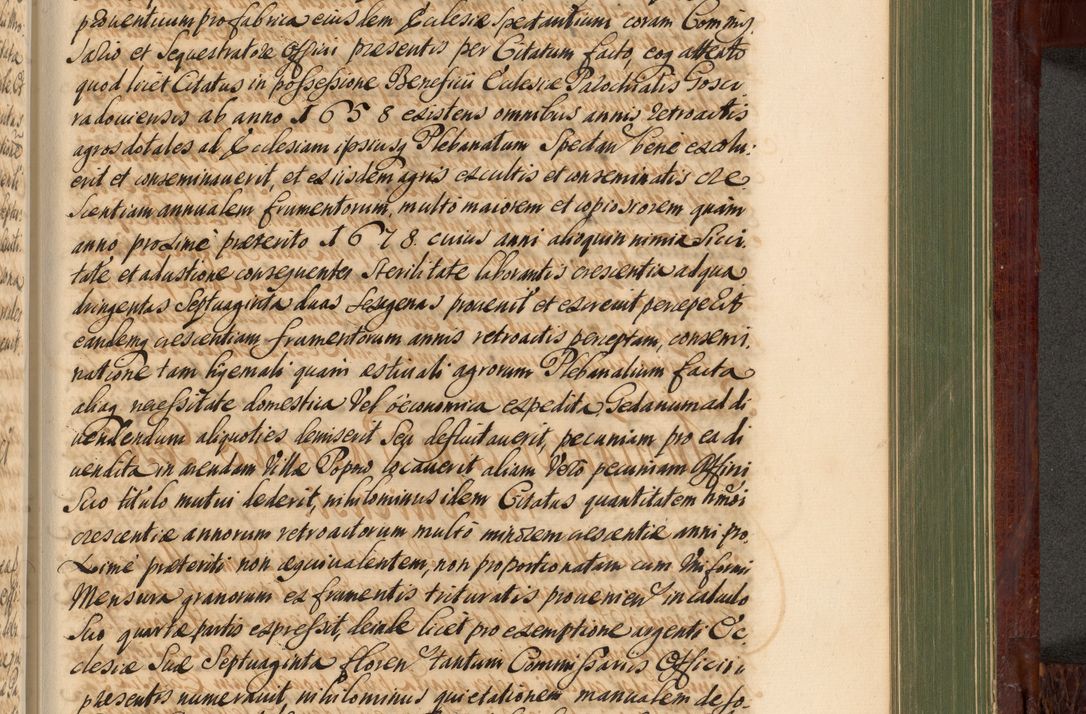 prouentuum pro fabrica eiusdem Ecclesiæ spectantium coram Commis
sario et Sequestratore Officii presentis per Citatum facto, eoq attento
quod licet Citatus in possessione Beneficii Ecclesiæ Parochialis Gosci
radouiensis ab anno 1658 existens omnibus annis retroactis
agros dotales ad Ecclesiam ipsiusq Plebanatum spectan bene excolu:
erit et conseminauerit, et ex iisdem agris excultis et conseminatis cre
scentiam annualem frumentorum, multo maiorem et copiosiorem quam
anno proxime præterito 1678. cuius anni alioquin nimia sicci
tate et adustione consequenter sterilitate laborantis crescentia ad qua
dringentas septuaginta duas sexagenas prouenit et excreuit percepe⁠rit
eandemq crescentiam frumentorum annis retroactis perceptam, consemi
natione tam hyemali quam estiuali agrorum Plebanalium facta
aliaq necessitate domestica vel œconomica expedita Gedanum ad di
uendendum aliquoties demiserit seu defluitauerit, pecuniam pro ea di
uendita in arendam Villæ Popno locauerit aliam vero pecuniam Officii
suo titulo mutui dederit, nihilominus idem Citatus quantitatem hmoi
crescentiæ annorum retroactorum multo minorem crescentiæ anni pro
xime præteriti non æquiualentem, non proportionatam cum Uniformi
Mensura granorum ex frumentis trituratis prouenien in calculo
suo quartæ partis expressit, deinde licet pro exemptione argenti Ec
clesiæ suæ septuaginta floren tantum Commissariis Officii
presentis numerauit, nihilominus quietationem manualem de so